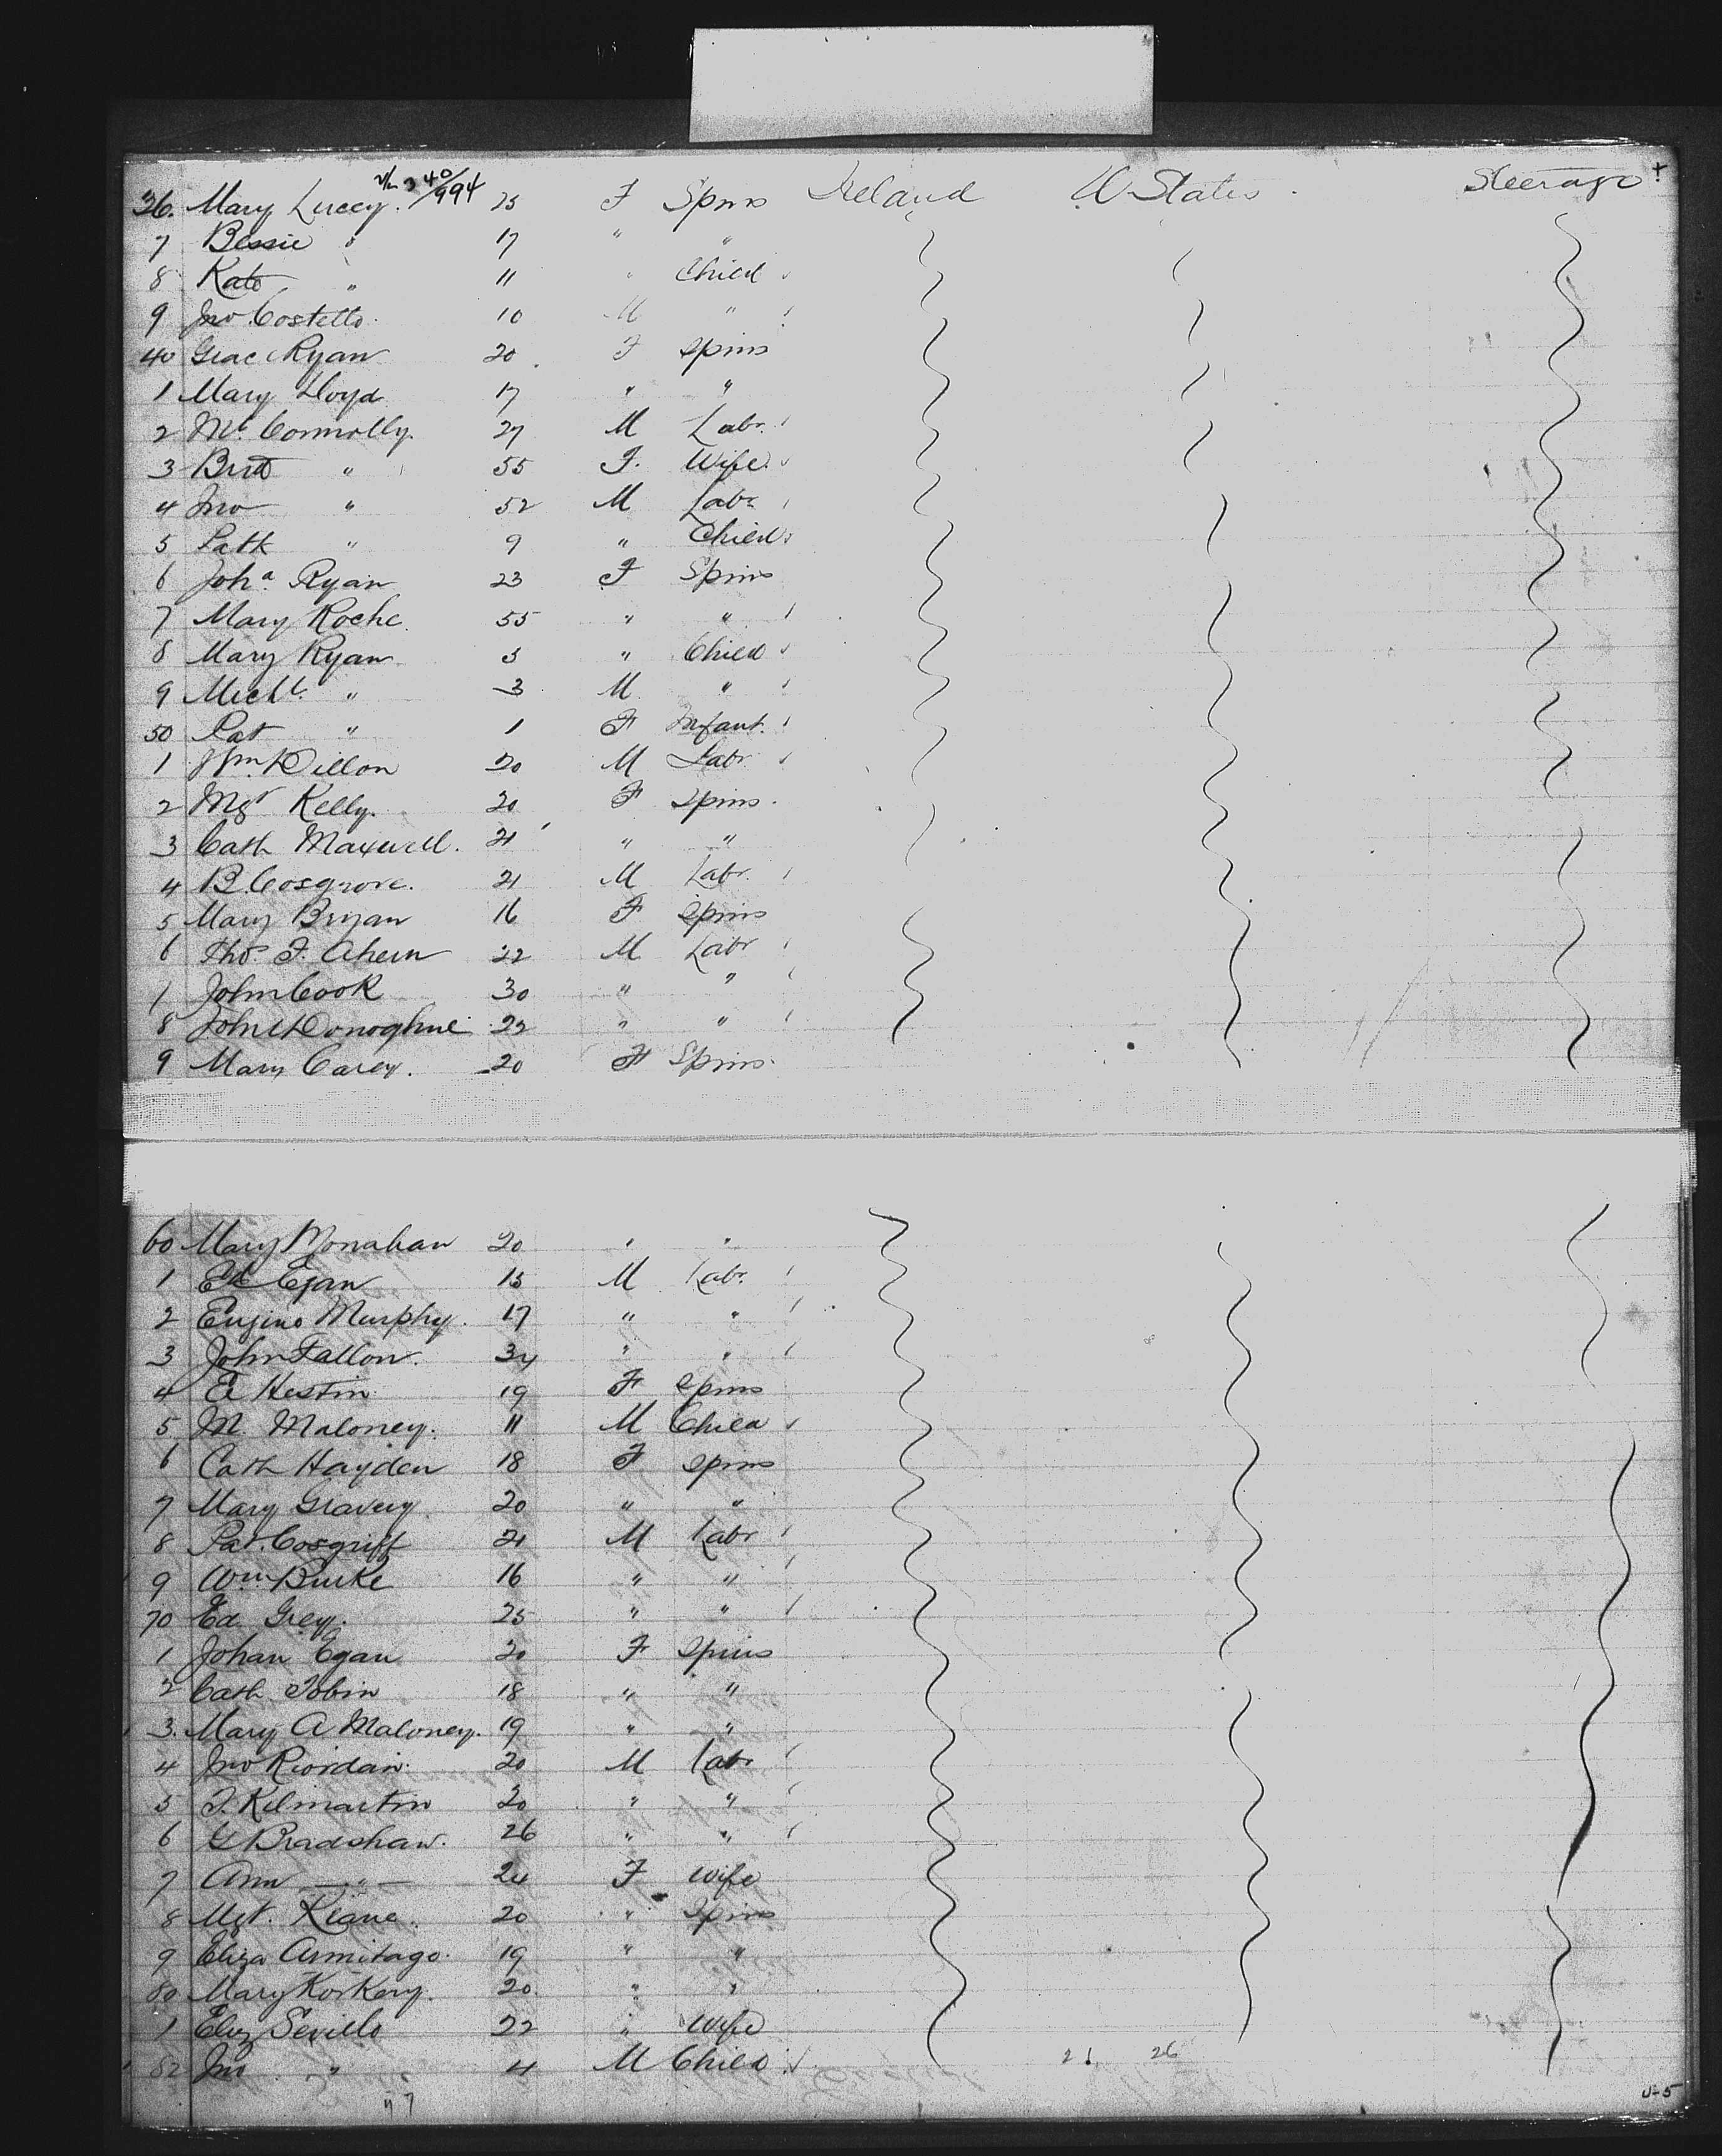 36. Mary Lucey. 40/994 25 F Spins Ireland U States Steerage
7 Bessie " 17 " "
8 Kate " 11 " Child
9 Jno Costello 10 M "
40 Grace Ryan 20 F Spins
1 Mary Lloyd 17 " "
2 Ml. Connolly. 27 M Labr.
3 Brid " 55 F. Wife
4 Jno " 52 M Labr
5 Patk " 9 " Child
6 Joha Ryan 23 F Spins
7 Mary Roche 55 " "
8 Mary Ryan 5 " Child
9 Michl. " 3 M "
50 Pat " 1 F Infant.
1 Wm Dillon 20 M Labr
2 Mgt Kelly. 20 F Spins.
3 Cath Maxwell. 21 " "
4 B. Cosgrove. 21 M Labr.
5 Mary Bryan 16 F Spins
6 Thos. F. Ahern 22 M Labr
7 John Cook 30 " "
8 John Donoghue 22 " "
9 Mary Carey. 20 F Spins.
60 Mary Monahan 20 " "
1 Ed Egan 15 M Labr.
2 Eugine Murphy. 17 " "
3 John Fallon. 34 " "
4 E Hestin 19 F Spins
5 M. Maloney. 11 M Child
6 Cath Hayden 18 F Spins
7 Mary Gravery 20 " "
8 Pat. Cosgriff 21 M Labr
9 Wm Burke 16 " "
70 Ed. Grey. 25 " "
1 Johan Egan 20 F Spins
2 Cath Tobin 18 " "
3. Mary A Maloney. 19 " "
4 Jno Riordan. 20 M Labr
5 J. Kilmartin 20 " "
6 G Bradshaw. 26 " "
7 Ann " 24 F Wife
8 Mgt. Keane. 20 " Spins
9 Eliza Armitage. 19 " "
80 Mary Korkery. 20. " "
1 Eliz Seville 22 " Wife
82 Jno " 4 M Child 21 26
77
U-5